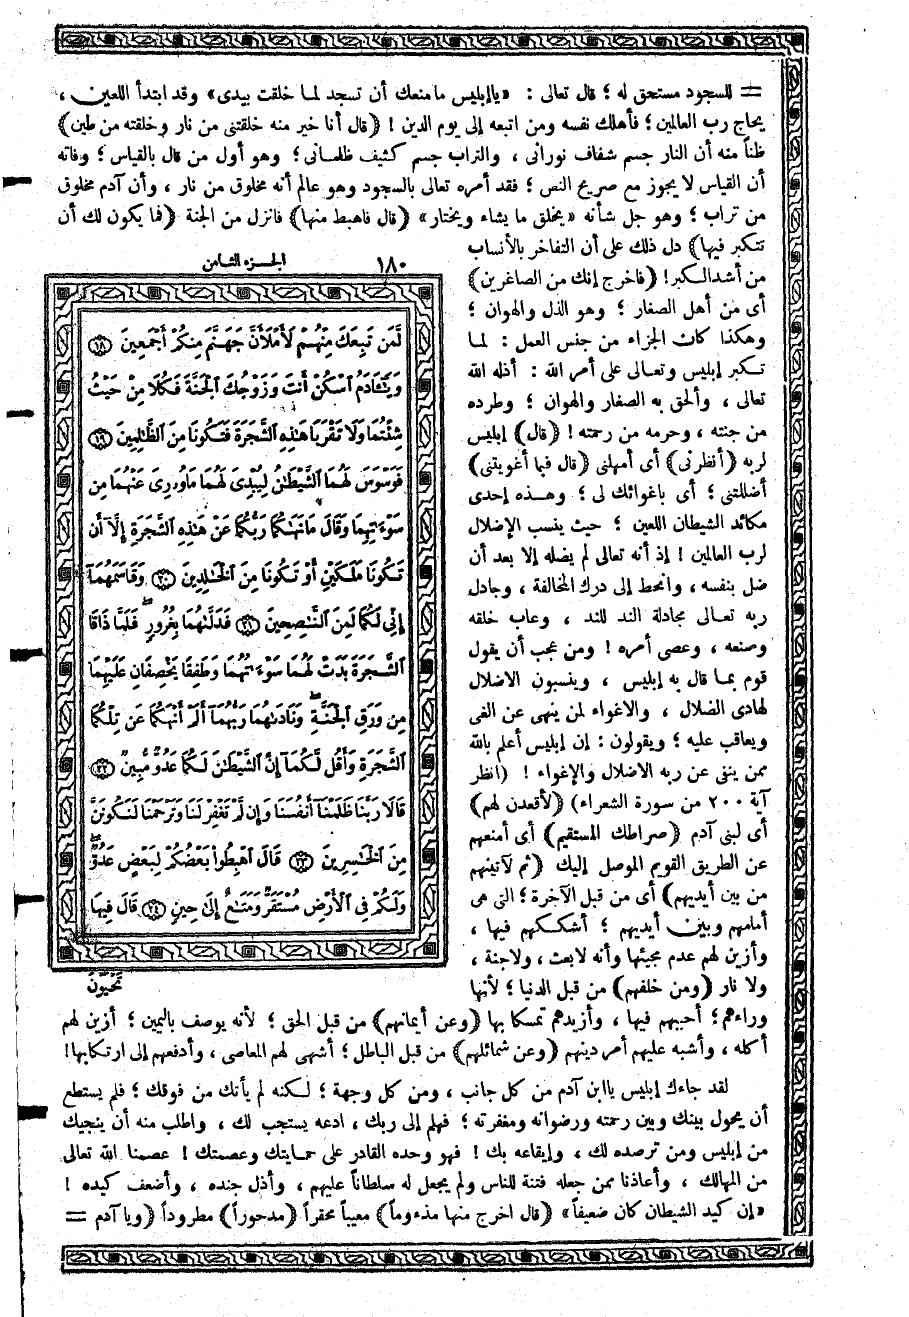 = للسجود مستحق له ؛ قال تعالى : «ياإبليس مامنعك أن تسجد لما خلقت بيدى» وقد ابتدأ اللعين ،
يحاج رب العالمين ؛ فأهلك نفسه ومن اتبعه إلى يوم الدين ! (قال أنا خير منه خلقتنى من نار وخلقته من طين)
ظناً منه أن النار جسم شفاف نورانى ، والتراب جسم كثيف ظلمانى ؛ وهو أول من قال بالقياس ؛ وفاته
أن القياس لا يجوز مع صريح النص ؛ فقد أمره تعالى بالسجود وهو عالم أنه مخلوق من نار ، وأن آدم مخلوق
من تراب ؛ وهو جل شأنه «يخلق ما يشاء ويختار» (قال فاهبط منها) فانزل من الجنة (فما يكون لك أن
تتكبر فيها) دل ذلك على أن التفاخر بالأنساب
من أشد الكبر ! (فاخرج إنك من الصاغرين)
أى من أهل الصغار ؛ وهو الذل والهوان ؛
وهكذا كان الجزاء من جنس العمل : لما
تكبر إبليس وتعالى على أمر الله : أذله الله
تعالى ، وألحق به الصغار والهوان ؛ وطرده
من جنته ، وحرمه من رحمته ! (قال) إبليس
لربه (أنظرنى) أى أمهلنى (قال فبما أغويتنى)
أضللتنى ؛ أى باغوائك لى ؛ وهذه إحدى
مكائد الشيطان اللعين ؛ حيث ينسب الإضلال
لرب العالمين ! إذ أنه تعالى لم يضله إلا بعد أن
ضل بنفسه ، وانحط إلى درك المخالفة ، وجادل
ربه تعالى مجادلة الند للند ، وعاب خلقه
وصنعه ، وعصى أمره ! ومن عجب أن يقول
قوم بما قال به إبليس ، وينسبون الاضلال
لهادى الضلال ، والاغواء لمن ينهى عن الغى
ويعاقب عليه ؛ ويقولون : إن إبليس أعلم بالله
ممن ينفى عن ربه الاضلال والإغواء ! (انظر
آية ٢٠٠ من سورة الشعراء) (لأقعدن لهم)
أى لبنى آدم (صراطك المستقيم) أى أمنعهم
عن الطريق القويم الموصل إليك (ثم لآتينهم
من بين أيديهم) أى من قبل الآخرة ؛ التى هى
أمامهم وبين أيديهم ؛ أشككهم فيها ،
وأزين لهم عدم مجيئها وأنه لا بعث ، ولا جنة ،
ولا نار (ومن خلفهم) من قبل الدنيا ؛ لأنها
١٨٠
الجزء الثامن
لَّمَن تَبِعَكَ مِنْهُمْ لَأَمْلَأَنَّ جَهَنَّمَ مِنكُمْ أَجْمَعِينَ ﴿١٨﴾
وَيَٰٓـَٔادَمُ ٱسْكُنْ أَنتَ وَزَوْجُكَ ٱلْجَنَّةَ فَكُلَا مِنْ حَيْثُ
شِئْتُمَا وَلَا تَقْرَبَا هَٰذِهِ ٱلشَّجَرَةَ فَتَكُونَا مِنَ ٱلظَّٰلِمِينَ ﴿١٩﴾
فَوَسْوَسَ لَهُمَا ٱلشَّيْطَٰنُ لِيُبْدِىَ لَهُمَا مَا وُۥرِىَ عَنْهُمَا مِن
سَوْءَٰتِهِمَا وَقَالَ مَا نَهَىٰكُمَا رَبُّكُمَا عَنْ هَٰذِهِ ٱلشَّجَرَةِ إِلَّآ أَن
تَكُونَا مَلَكَيْنِ أَوْ تَكُونَا مِنَ ٱلْخَٰلِدِينَ ﴿٢٠﴾ وَقَاسَمَهُمَآ
إِنِّى لَكُمَا لَمِنَ ٱلنَّٰصِحِينَ ﴿٢١﴾ فَدَلَّىٰهُمَا بِغُرُورٍ ۚ فَلَمَّا ذَاقَا
ٱلشَّجَرَةَ بَدَتْ لَهُمَا سَوْءَٰتُهُمَا وَطَفِقَا يَخْصِفَانِ عَلَيْهِمَا
مِن وَرَقِ ٱلْجَنَّةِ ۖ وَنَادَىٰهُمَا رَبُّهُمَآ أَلَمْ أَنْهَكُمَا عَن تِلْكُمَا
ٱلشَّجَرَةِ وَأَقُل لَّكُمَآ إِنَّ ٱلشَّيْطَٰنَ لَكُمَا عَدُوٌّ مُّبِينٌ ﴿٢٢﴾
قَالَا رَبَّنَا ظَلَمْنَآ أَنفُسَنَا وَإِن لَّمْ تَغْفِرْ لَنَا وَتَرْحَمْنَا لَنَكُونَنَّ
مِنَ ٱلْخَٰسِرِينَ ﴿٢٣﴾ قَالَ ٱهْبِطُوا۟ بَعْضُكُمْ لِبَعْضٍ عَدُوٌّ ۖ
وَلَكُمْ فِى ٱلْأَرْضِ مُسْتَقَرٌّ وَمَتَٰعٌ إِلَىٰ حِينٍ ﴿٢٤﴾ قَالَ فِيهَا
تَحْيَوْنَ
وراءهم ؛ أحببهم فيها ، وأزيدهم تمسكا بها (وعن أيمانهم) من قبل الحق ؛ لأنه يوصف باليمين ؛ أزين لهم
أكله ، وأشبه عليهم أمر دينهم (وعن شمائلهم) من قبل الباطل ؛ أشهى لهم المعاصى ، وأدفعهم إلى ارتكابها !
لقد جاءك إبليس يا ابن آدم من كل جانب ، ومن كل وجهة ؛ لكنه لم يأتك من فوقك ؛ فلم يستطع
أن يحول بينك وبين رحمته ورضوانه ومغفرته ؛ فهلم إلى ربك ، ادعه يستجب لك ، واطلب منه أن ينجيك
من إبليس ومن ترصده لك ، وإيقاعه بك ! فهو وحده القادر على حمايتك وعصمتك ! عصمنا الله تعالى
من المهالك ، وأعاذنا ممن جعله فتنة للناس ولم يجعل له سلطاناً عليهم ، وأذل جنده ، وأضعف كيده !
«إن كيد الشيطان كان ضعيفاً» (قال اخرج منها مذءوماً) معيباً محقراً (مدحوراً) مطروداً (ويا آدم =